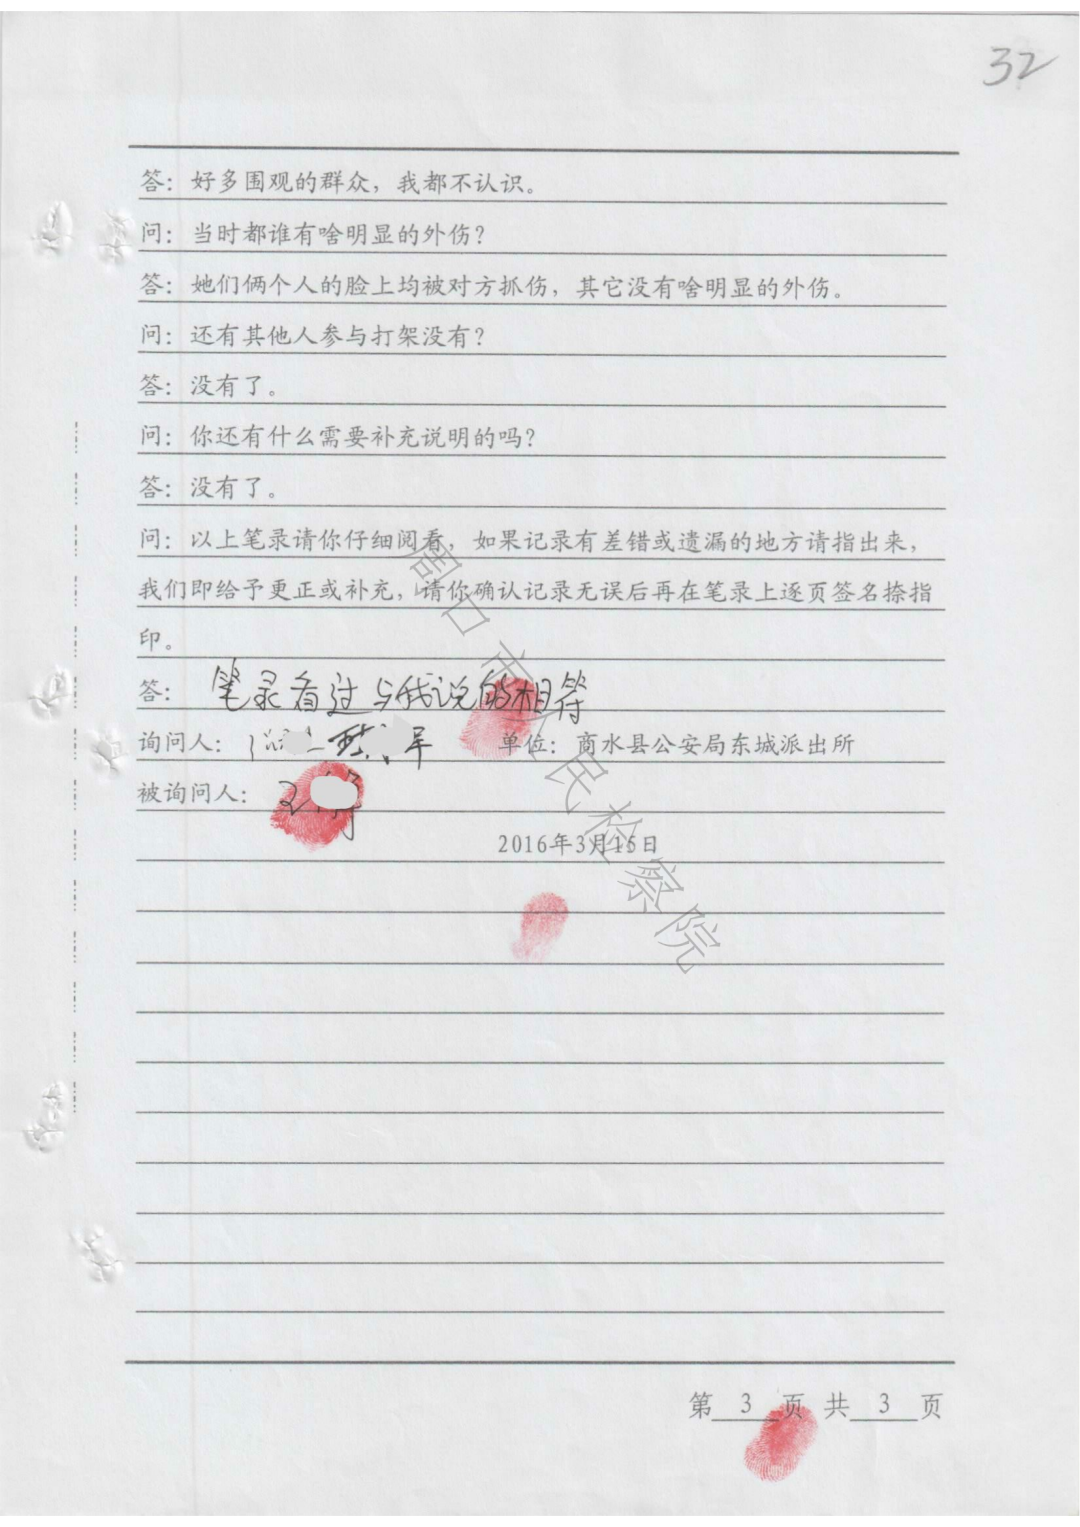 32
答：好多围观的群众，我都不认识。
问：当时都谁有啥明显的外伤？
答：她们俩个人的脸上均被对方抓伤，其它没有啥明显的外伤。
问：还有其他人参与打架没有？
答：没有了。
问：你还有什么需要补充说明的吗？
答：没有了。
问：以上笔录请你仔细阅看，如果记录有差错或遗漏的地方请指出来，
我们即给予更正或补充，请你确认记录无误后再在笔录上逐页签名捺指
印。
答：笔录看过与我说的相符
询问人： 单位：商水县公安局东城派出所
被询问人：
2016年3月15日
周口市人民检察院
第 3 页 共 3 页